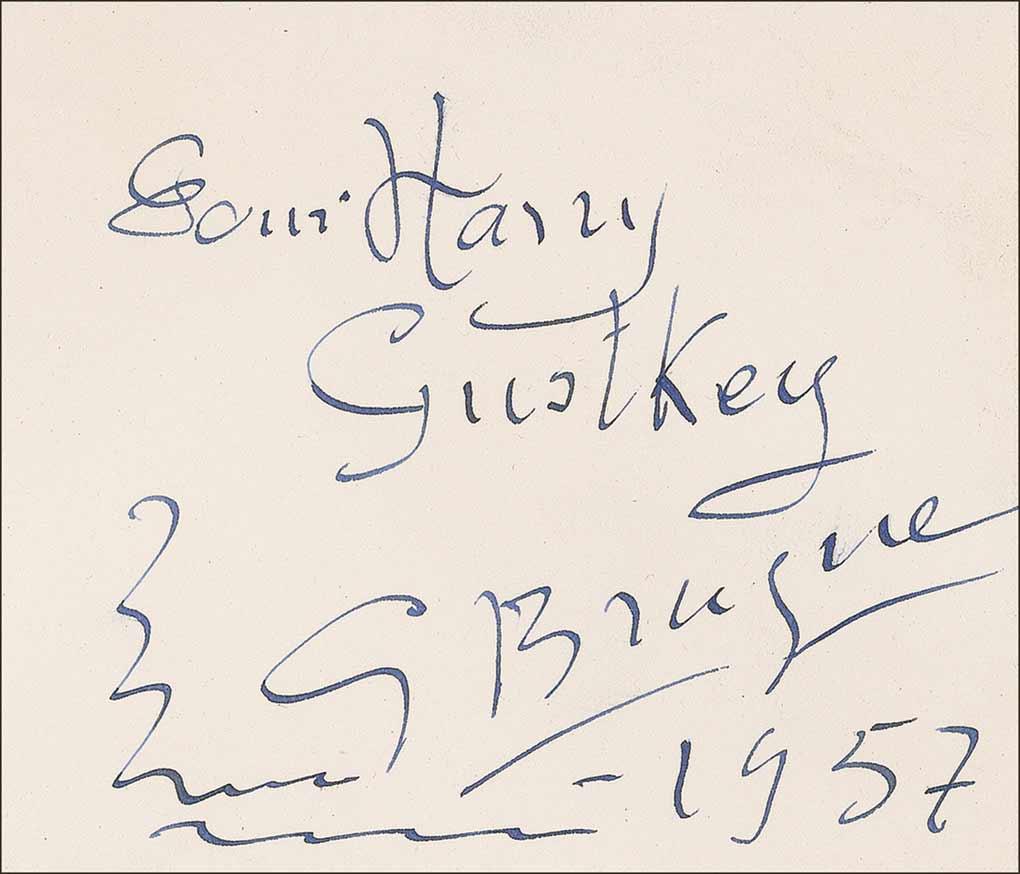 Pour Harry
Gustkey
G Braque
- 1957